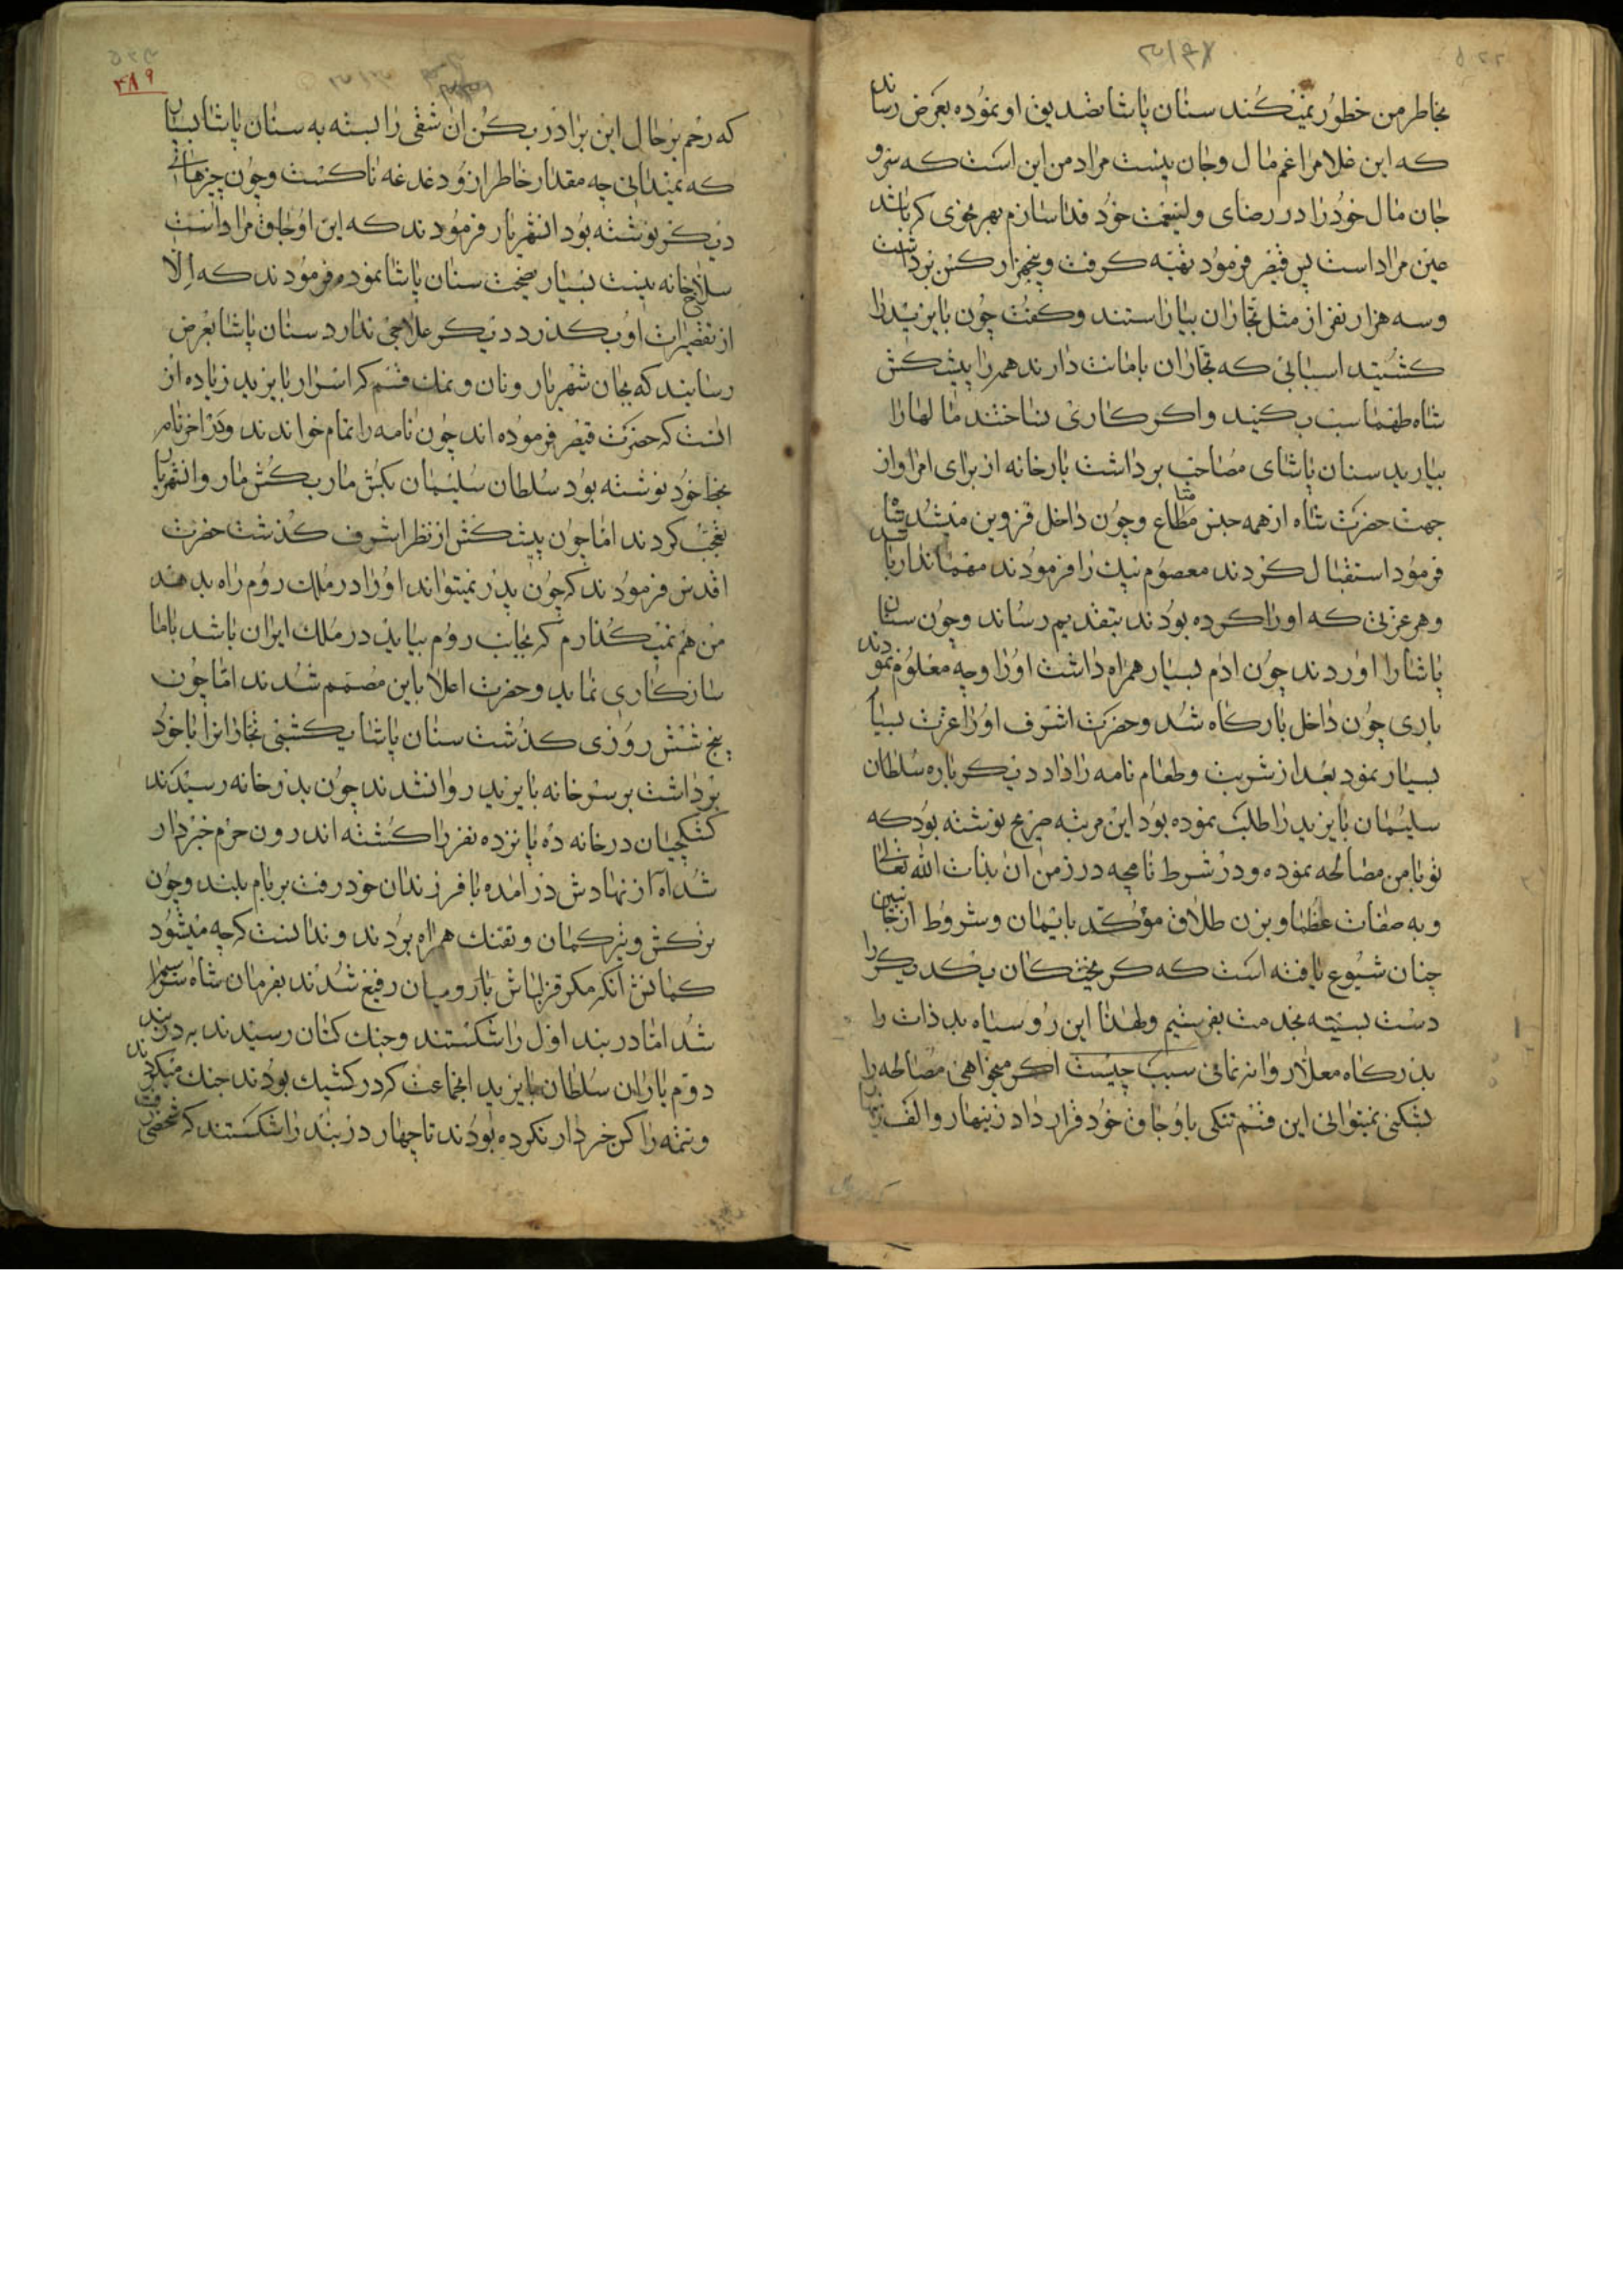 بخاطر من خطور نمیکند سنان پاشا تصدیق او نموده بعرض رساند
که این غلام را غم مال و جان نیست مراد من این است که سر و
جان مال خود را در رضای ولینعمت خود فدا سازم بهر نحوی که باشد
عین مراد است پس قیصر فرمود تهیه گرفت و پنجهزار کس برداشت
و سه هزار نفر از مثل تجاران بیاراستند و گفت چون بایزید را
کشتید اسبانی که تجاران بامانت دارند همه را پیشکش
شاه طهماسب بکنید و اگر کاری نساختند مالها را
بیارید سنان پاشای مصاحب برداشت بارخانه از برای امرا و از
جهت حضرت شاه از همه جنس متاع و چون داخل قزوین میشد شاه
فرمود استقبال کردند معصوم بیک را فرمودند مهماندار باشد
و هر عزتی که او را کرده بودند بتقدیم رساند و چون سنان
پاشا را اوردند چون ادم بسیار همراه داشت او را وجه معلوم نمودند
باری چون داخل بارگاه شد و حضرت اشرف او را عزت بسیار
بسیار نمود بعد از شربت و طعام نامه را داد دیگر باره سلطان
سلیمان بایزید را طلب نموده بود این مرتبه صریح نوشته بود که
تو با من مصالحه نموده و در شرط نامچه در زمن ان بذات الله تعالی
و به صفات عظما و بزن طلاق مؤکد بایمان و شروط از جانبین
چنان شیوع یافته است که گریختگان یکدیگر را
دست بسته بخدمت بفرستیم و لهذا این رو سیاه بد ذات را
بدرگاه معلا روانه نمائی سبب چیست اگر میخواهی مصالحه را
بشکنی نمیتوانی این قسم تنکی با وجاق خود قرار داد زینهار و الف زینهار
که رحم بر حال این برادر بکن ان شقی را بسته به سنان پاشا بسپار
که نمیدانی چه مقدار خاطر ازو دغدغه ناکست و چون چیزهائی
دیگر نوشته بود انشهریار فرمودند که این اوجاق مراد است
سلاخ خانه نیست بسیار نصیحت سنان پاشا نموده فرمودند که الا
از تقصیرات او بگذرد دیگر علاجی ندارد سنان پاشا بعرض
رسانید که بجان شهریار و نان و نمک قسم که اسرار بایزید زیاده از
انست که حضرت قیصر فرموده اند چون نامه را تمام خواندند و در اخر نامه
بخط خود نوشته بود سلطان سلیمان بکش مار بکش مار و انشهریار
تعجب کردند اما چون پیشکش از نظر اشرف گذشت حضرت
اقدس فرمودند که چون پدر نمیتواند او را در ملک روم راه بدهد
من هم نمیگذارم که بجانب روم بیاید در ملک ایران باشد با ما
سازگاری نماید و حضرت اعلا باین مصمم شدند اما چون
پنج شش روزی گذشت سنان پاشا یکشبی تجارانرا با خود
برداشت بر سر خانه بایزید روانشدند چون بدر خانه رسیدند
کشکچیان در خانه ده پانزده نفر را کشته اندرون حرم خبردار
شد اه از نهادش در امده با فرزندان خود رفت بر بام بلند و چون
ترکش و تیر کمان و تفنک همراه بردند و ندانست که چه میشود
کمانش انکه مکر قزلباش با رومیان رفیع شدند بفرمان شاه سوار
شد اما در بند اول را شکستند و جنك کنان رسیدند به در بند
دوم یاران سلطان بایزید انجماعت که در کشیك بودند جنك میکردند
و تتمه را کس خبردار نکرده بودند تا چهار در بند را شکستند که شخصی رفت